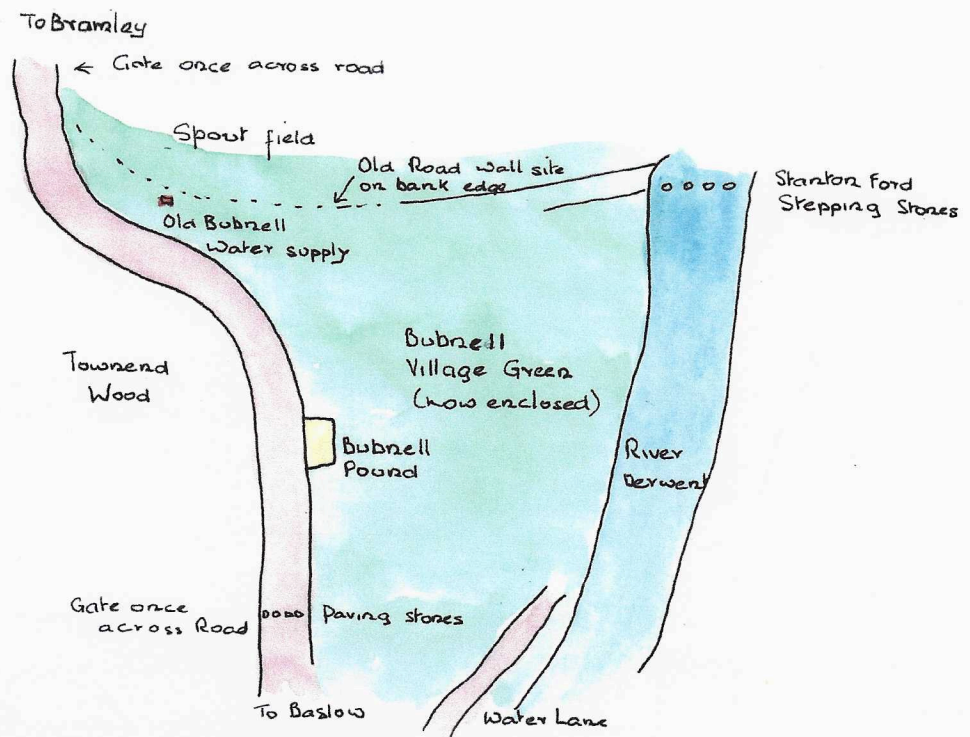 To Bramley
← Gate once across road
Spout field
Old Road wall site
on bank edge
Stanton Ford
Stepping Stones
Old Bubnell
Water supply
Bubnell
Village Green
(now enclosed)
Townend
Wood
Bubnell
Pound
River
Derwent
Gate once
across Road
Paving stones
To Baslow
Water Lane